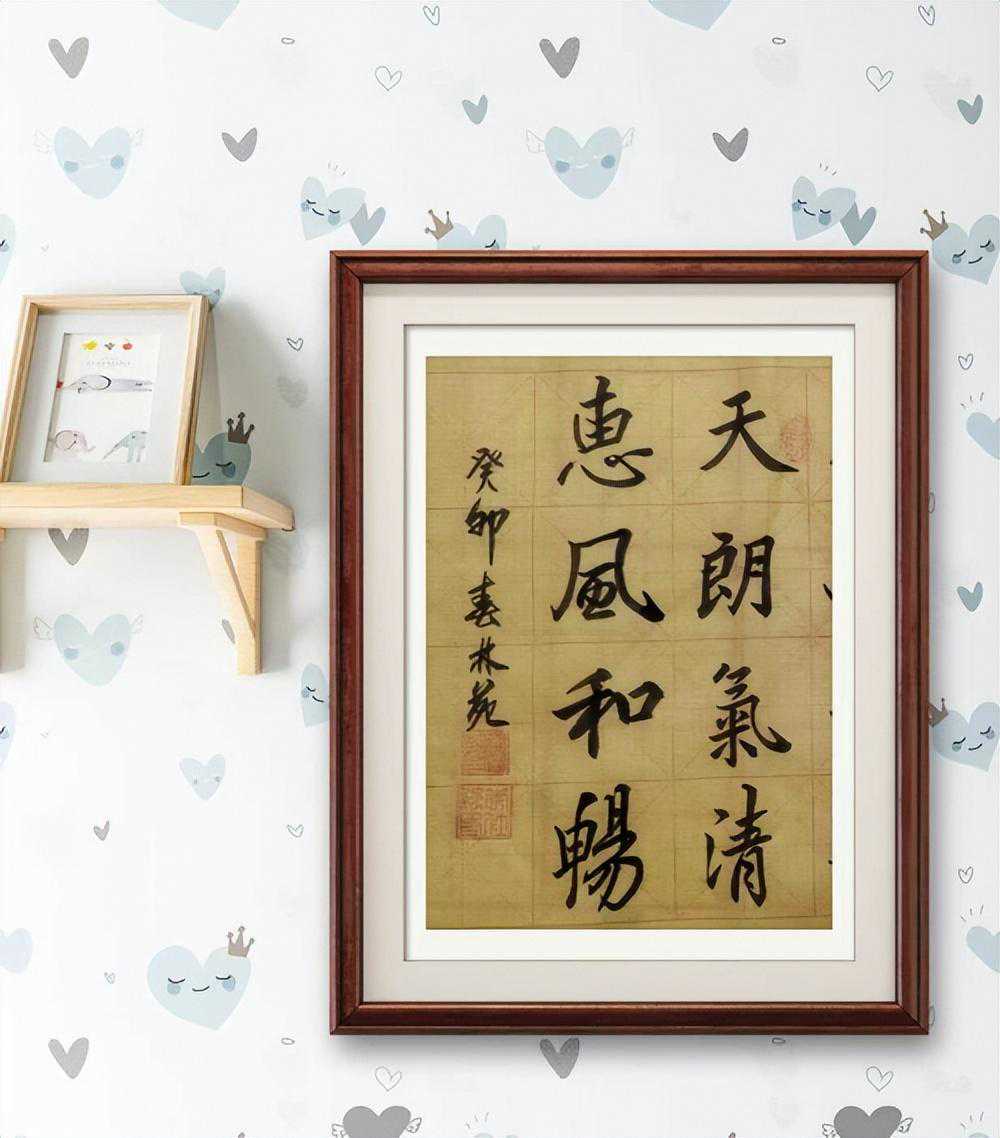 天朗氣清
惠風和暢
癸卯春林苑